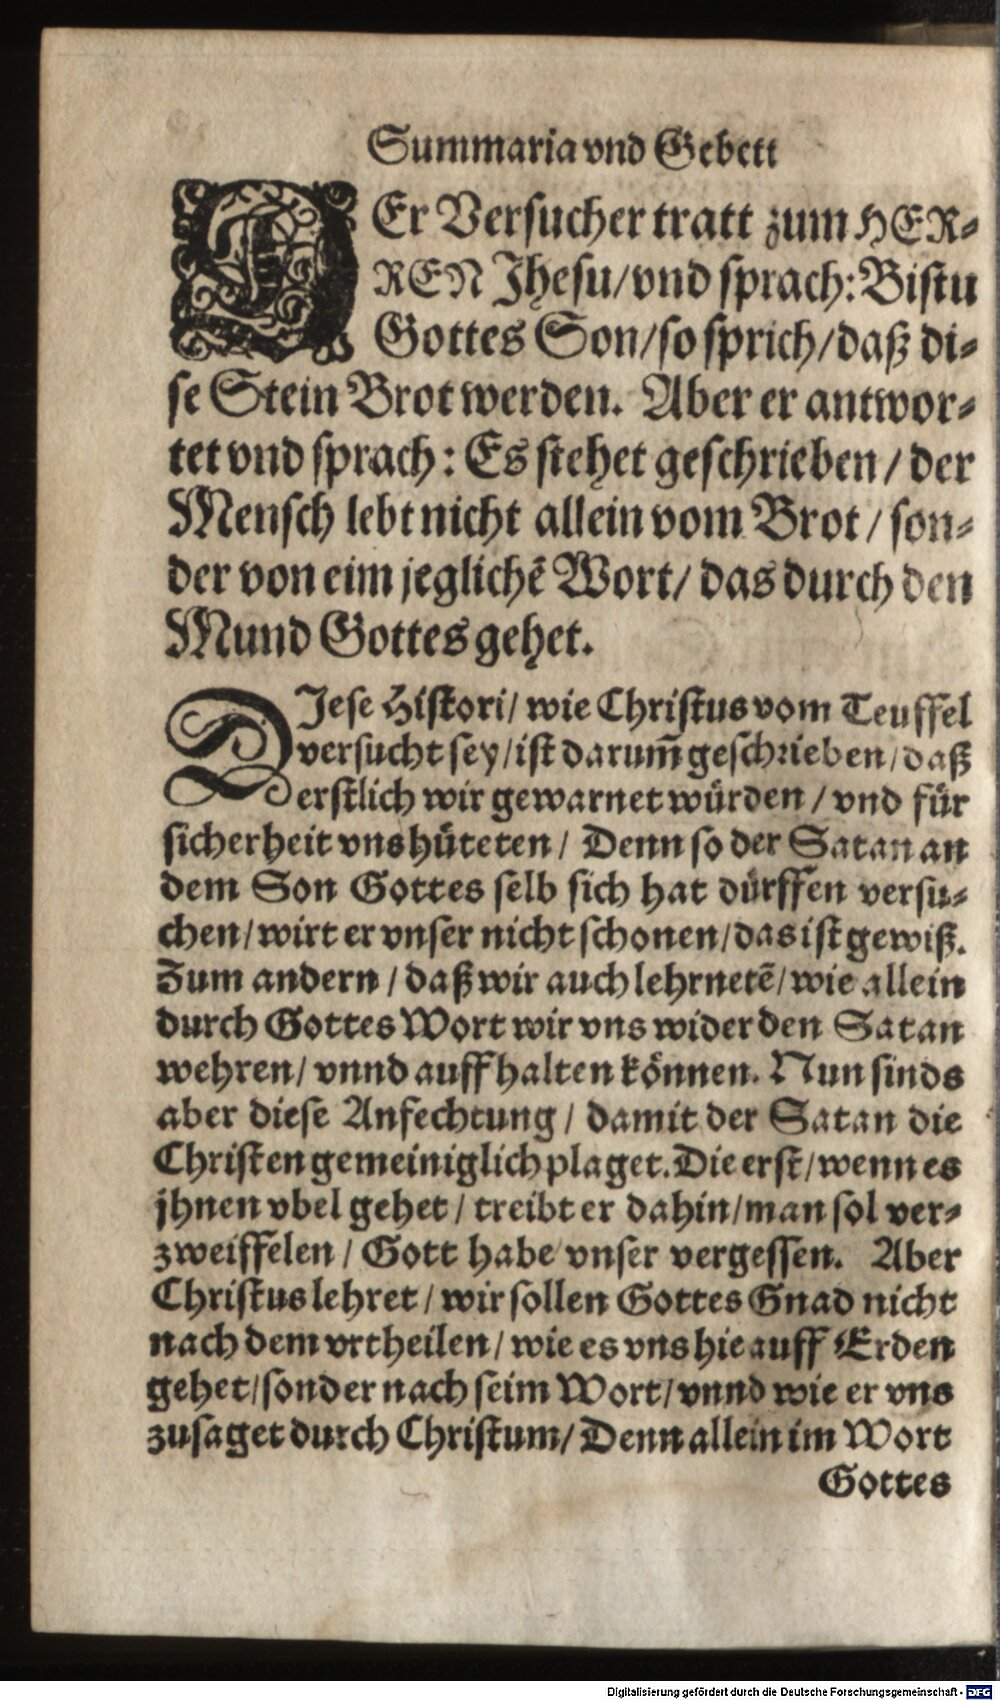 Summaria vnd Gebett
DEr Versucher tratt zum HER-
REN Jhesu/vnd sprach: Bistu
Gottes Son/so sprich/daß di-
se Stein Brot werden. Aber er antwor-
tet vnd sprach: Es stehet geschrieben/ der
Mensch lebt nicht allein vom Brot/ son-
der von eim jeglichẽ Wort/ das durch den
Mund Gottes gehet.
DIese Histori/ wie Christus vom Teuffel
versucht sey/ist darum̃ geschrieben/daß
erstlich wir gewarnet würden/ vnd für
sicherheit vns hüteten/ Denn so der Satan an
dem Son Gottes selb sich hat dürffen versu-
chen/wirt er vnser nicht schonen/das ist gewiß.
Zum andern/ daß wir auch lehrnetẽ/wie allein
durch Gottes Wort wir vns wider den Satan
wehren/ vnnd auffhalten können. Nun sinds
aber diese Anfechtung/ damit der Satan die
Christen gemeiniglich plaget. Die erst/wenn es
jhnen vbel gehet/ treibt er dahin/man sol ver-
zweiffelen/ Gott habe vnser vergessen. Aber
Christus lehret/ wir sollen Gottes Gnad nicht
nach dem vrtheilen/ wie es vns hie auff Erden
gehet/sonder nach seim Wort/vnnd wie er vns
zusaget durch Christum/ Denn allein im Wort
Gottes
Digitalisierung gefördert durch die Deutsche Forschungsgemeinschaft - DFG